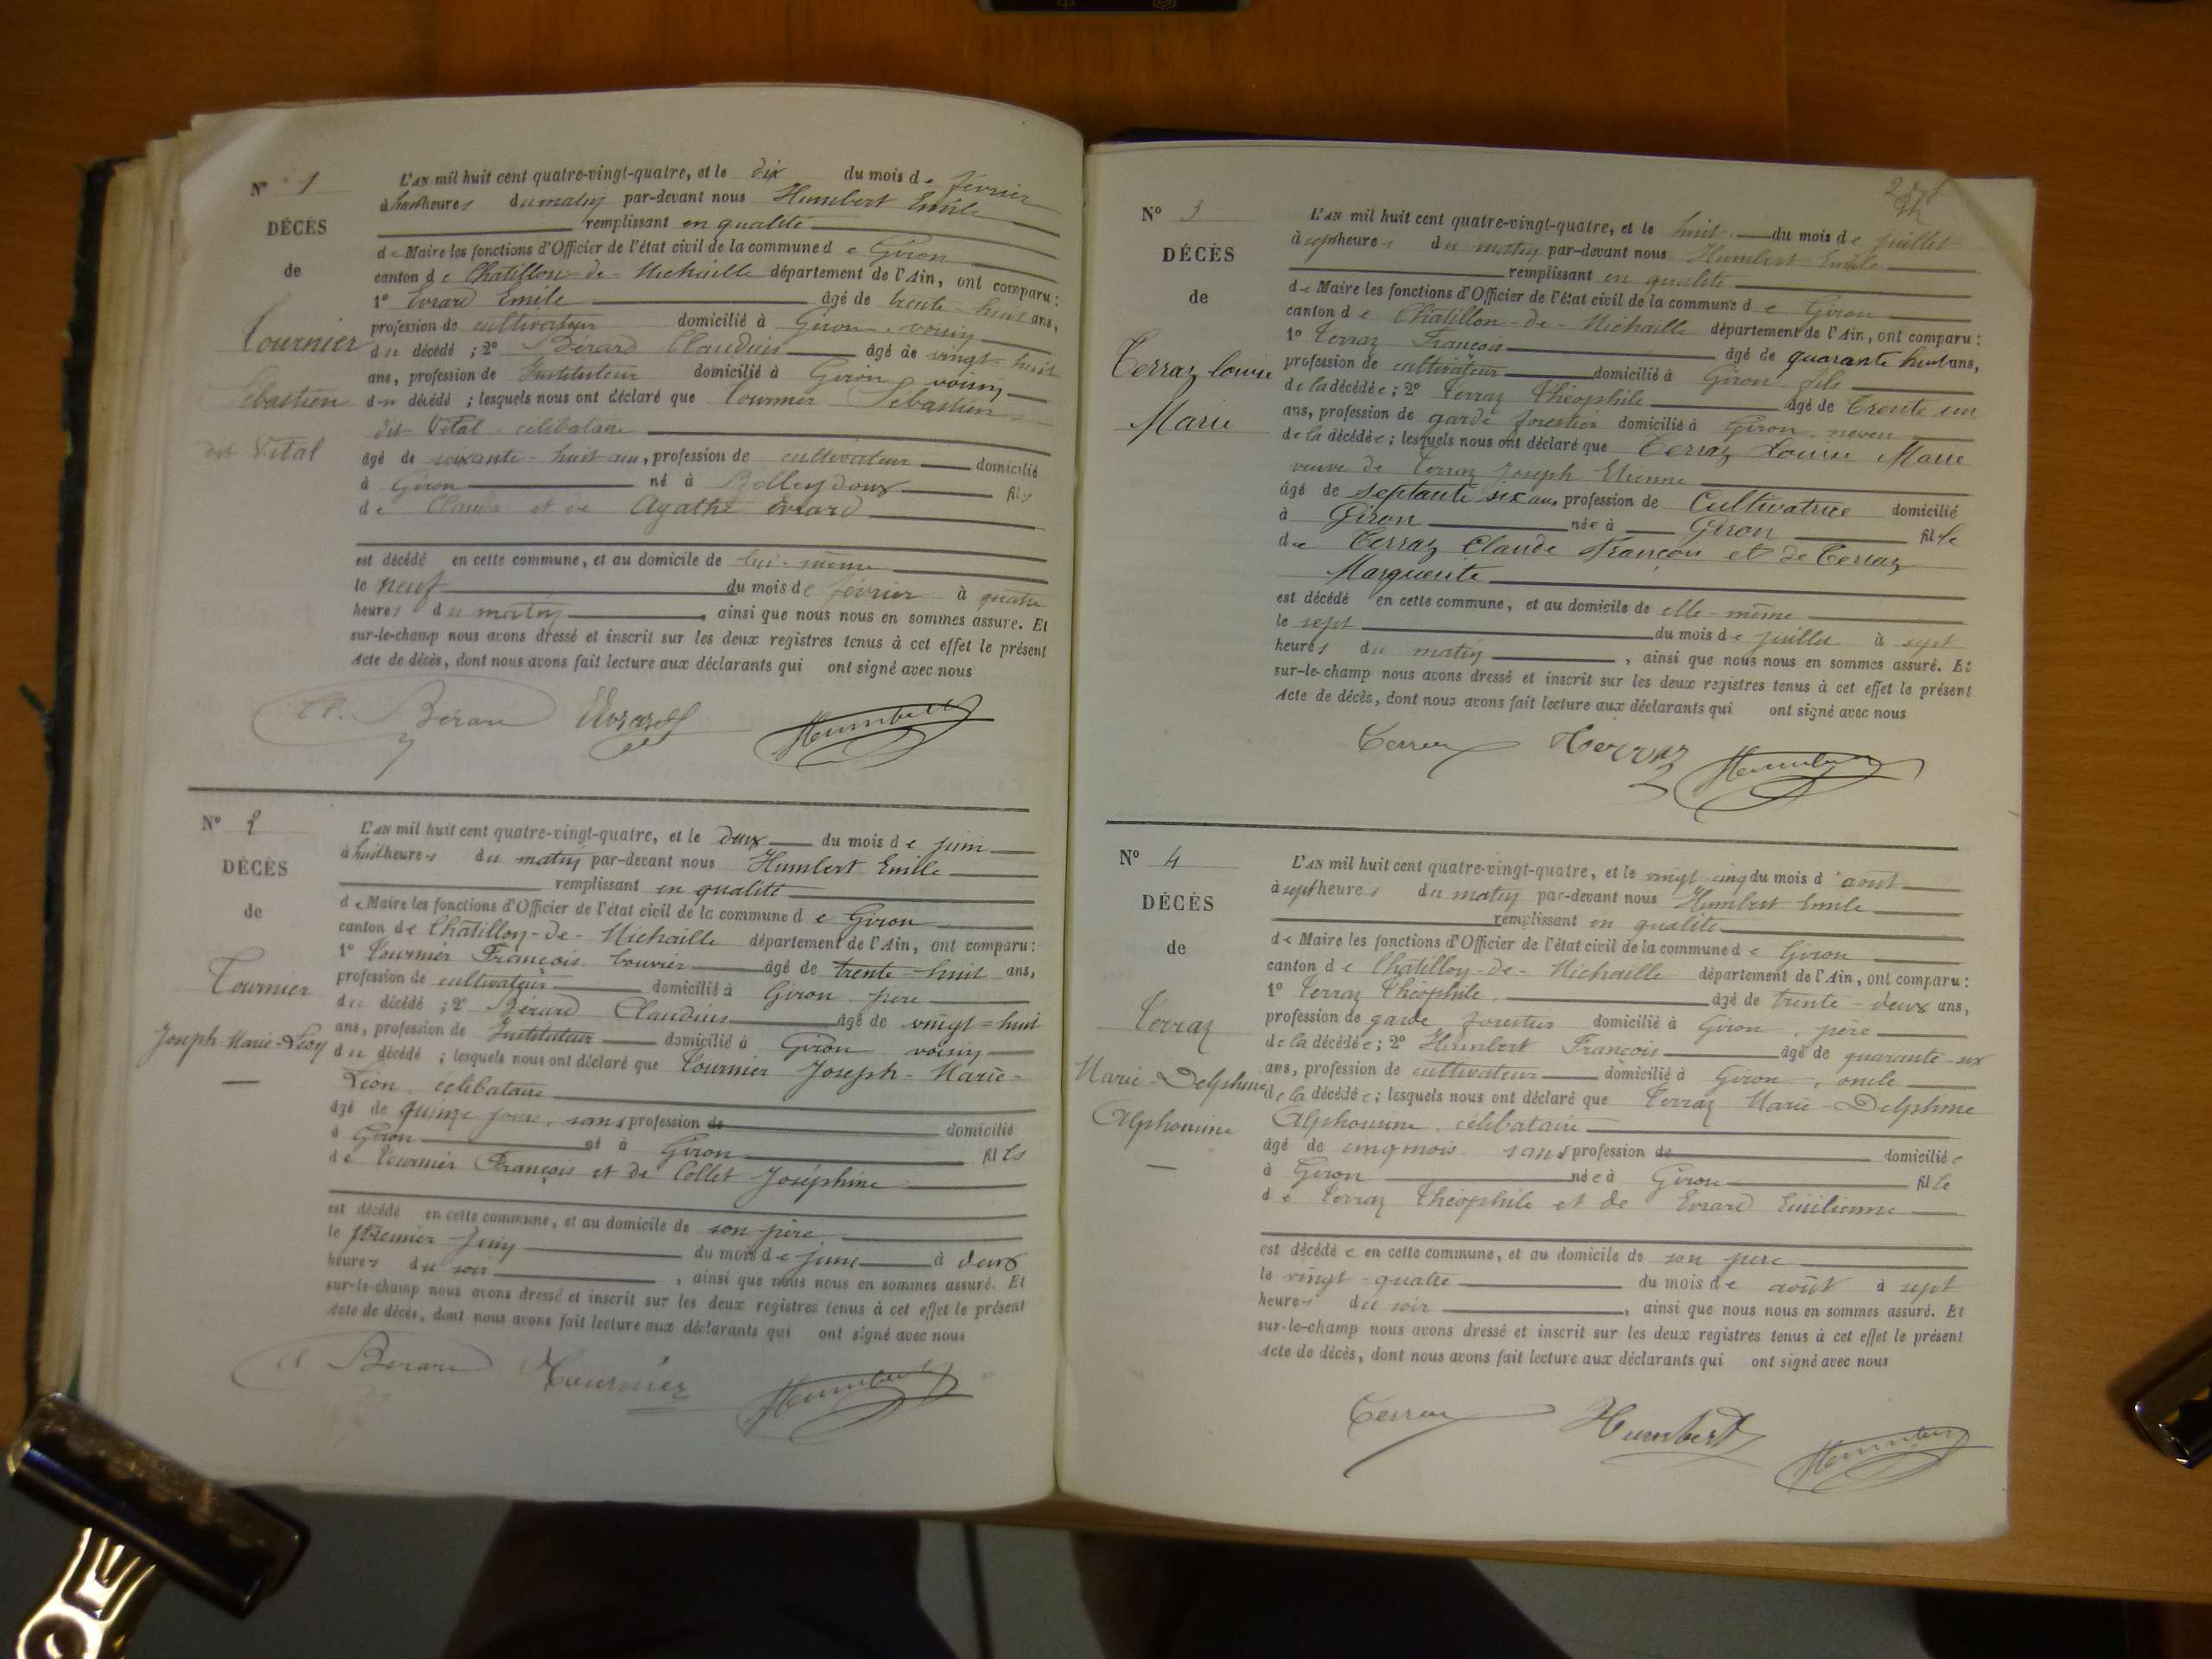 N° 1
DÉCÈS
de
Tournier
Sébastien
dit Vital
L'AN mil huit cent quatre-vingt-quatre, et le dix du mois de février
à huit heures du matin par-devant nous Humbert Emile
remplissant en qualité
de Maire les fonctions d'Officier de l'état civil de la commune de Giron
canton de Chatillon-de-Michaille département de l'Ain, ont comparu :
1° Evrard Emile âgé de trente-huit ans,
profession de cultivateur domicilié à Giron, voisin
du décédé ; 2° Bérard Claudius âgé de vingt-huit
ans, profession de Instituteur domicilié à Giron, voisin
du décédé ; lesquels nous ont déclaré que Tournier Sébastien
dit Vital, célibataire
âgé de soixante-huit ans, profession de cultivateur domicilié
à Giron né à Belleydoux fils
de Claude et de Agathe Evrard
est décédé en cette commune, et au domicile de lui-même
le neuf du mois de février à quatre
heures du matin, ainsi que nous nous en sommes assuré. Et
sur-le-champ nous avons dressé et inscrit sur les deux registres tenus à cet effet le présent
Acte de décès, dont nous avons fait lecture aux déclarants qui ont signé avec nous
Cl. Bérard Evrard Humbert
N° 2
DÉCÈS
de
Tournier
Joseph-Marie-Léon
L'AN mil huit cent quatre-vingt-quatre, et le deux du mois de juin
à huit heures du matin par-devant nous Humbert Emile
remplissant en qualité
de Maire les fonctions d'Officier de l'état civil de la commune de Giron
canton de Chatillon-de-Michaille département de l'Ain, ont comparu :
1° Tournier François bouvier âgé de trente-huit ans,
profession de cultivateur domicilié à Giron, père
du décédé ; 2° Bérard Claudius âgé de vingt-huit
ans, profession de Instituteur domicilié à Giron voisin
du décédé ; lesquels nous ont déclaré que Tournier Joseph-Marie-
Léon, célibataire
âgé de quinze jours, sans profession de domicilié
à Giron né à Giron fils
de Tournier François et de Collet Joséphine
est décédé en cette commune, et au domicile de son père
le premier juin du mois de juin à deux
heures du soir, ainsi que nous nous en sommes assuré. Et
sur-le-champ nous avons dressé et inscrit sur les deux registres tenus à cet effet le présent
Acte de décès, dont nous avons fait lecture aux déclarants qui ont signé avec nous
Cl Bérard Tournier Humbert
N° 3
DÉCÈS
de
Terraz Louise
Marie
L'AN mil huit cent quatre-vingt-quatre, et le huit du mois de juillet
à sept heures du matin par-devant nous Humbert Emile
remplissant en qualité
de Maire les fonctions d'Officier de l'état civil de la commune de Giron
canton de Chatillon-de-Michaille département de l'Ain, ont comparu :
1° Terraz François âgé de quarante huit ans,
profession de cultivateur domicilié à Giron, fils
de la décédée ; 2° Terraz Théophile âgé de trente un
ans, profession de garde forestier domicilié à Giron, neveu
de la décédée ; lesquels nous ont déclaré que Terraz Louise Marie
veuve de Terraz Joseph Etienne
âgé de septante six ans, profession de Cultivatrice domicilié
à Giron née à Giron fille
de Terraz Claude François et de Terraz
Marguerite
est décédé en cette commune, et au domicile de elle-même
le sept du mois de juillet à sept
heures du matin, ainsi que nous nous en sommes assuré. Et
sur-le-champ nous avons dressé et inscrit sur les deux registres tenus à cet effet le présent
Acte de décès, dont nous avons fait lecture aux déclarants qui ont signé avec nous
Terraz Terraz Humbert
N° 4
DÉCÈS
de
Terraz
Marie-Delphine
Alphonsine
L'AN mil huit cent quatre-vingt-quatre, et le vingt cinq du mois d'août
à sept heures du matin par-devant nous Humbert Emile
remplissant en qualité
de Maire les fonctions d'Officier de l'état civil de la commune de Giron
canton de Chatillon-de-Michaille département de l'Ain, ont comparu :
1° Terraz Théophile âgé de trente-deux ans,
profession de garde forestier domicilié à Giron, père
de la décédée ; 2° Humbert François âgé de quarante-six
ans, profession de cultivateur domicilié à Giron, oncle
de la décédée ; lesquels nous ont déclaré que Terraz Marie-Delphine
Alphonsine, célibataire
âgé de cinq mois, sans profession de domiciliée
à Giron née à Giron fille
de Terraz Théophile et de Evrard Emilienne
est décédée en cette commune, et au domicile de son père
le vingt-quatre du mois de août à sept
heures du soir, ainsi que nous nous en sommes assuré. Et
sur-le-champ nous avons dressé et inscrit sur les deux registres tenus à cet effet le présent
Acte de décès, dont nous avons fait lecture aux déclarants qui ont signé avec nous
Terraz Humbert Humbert